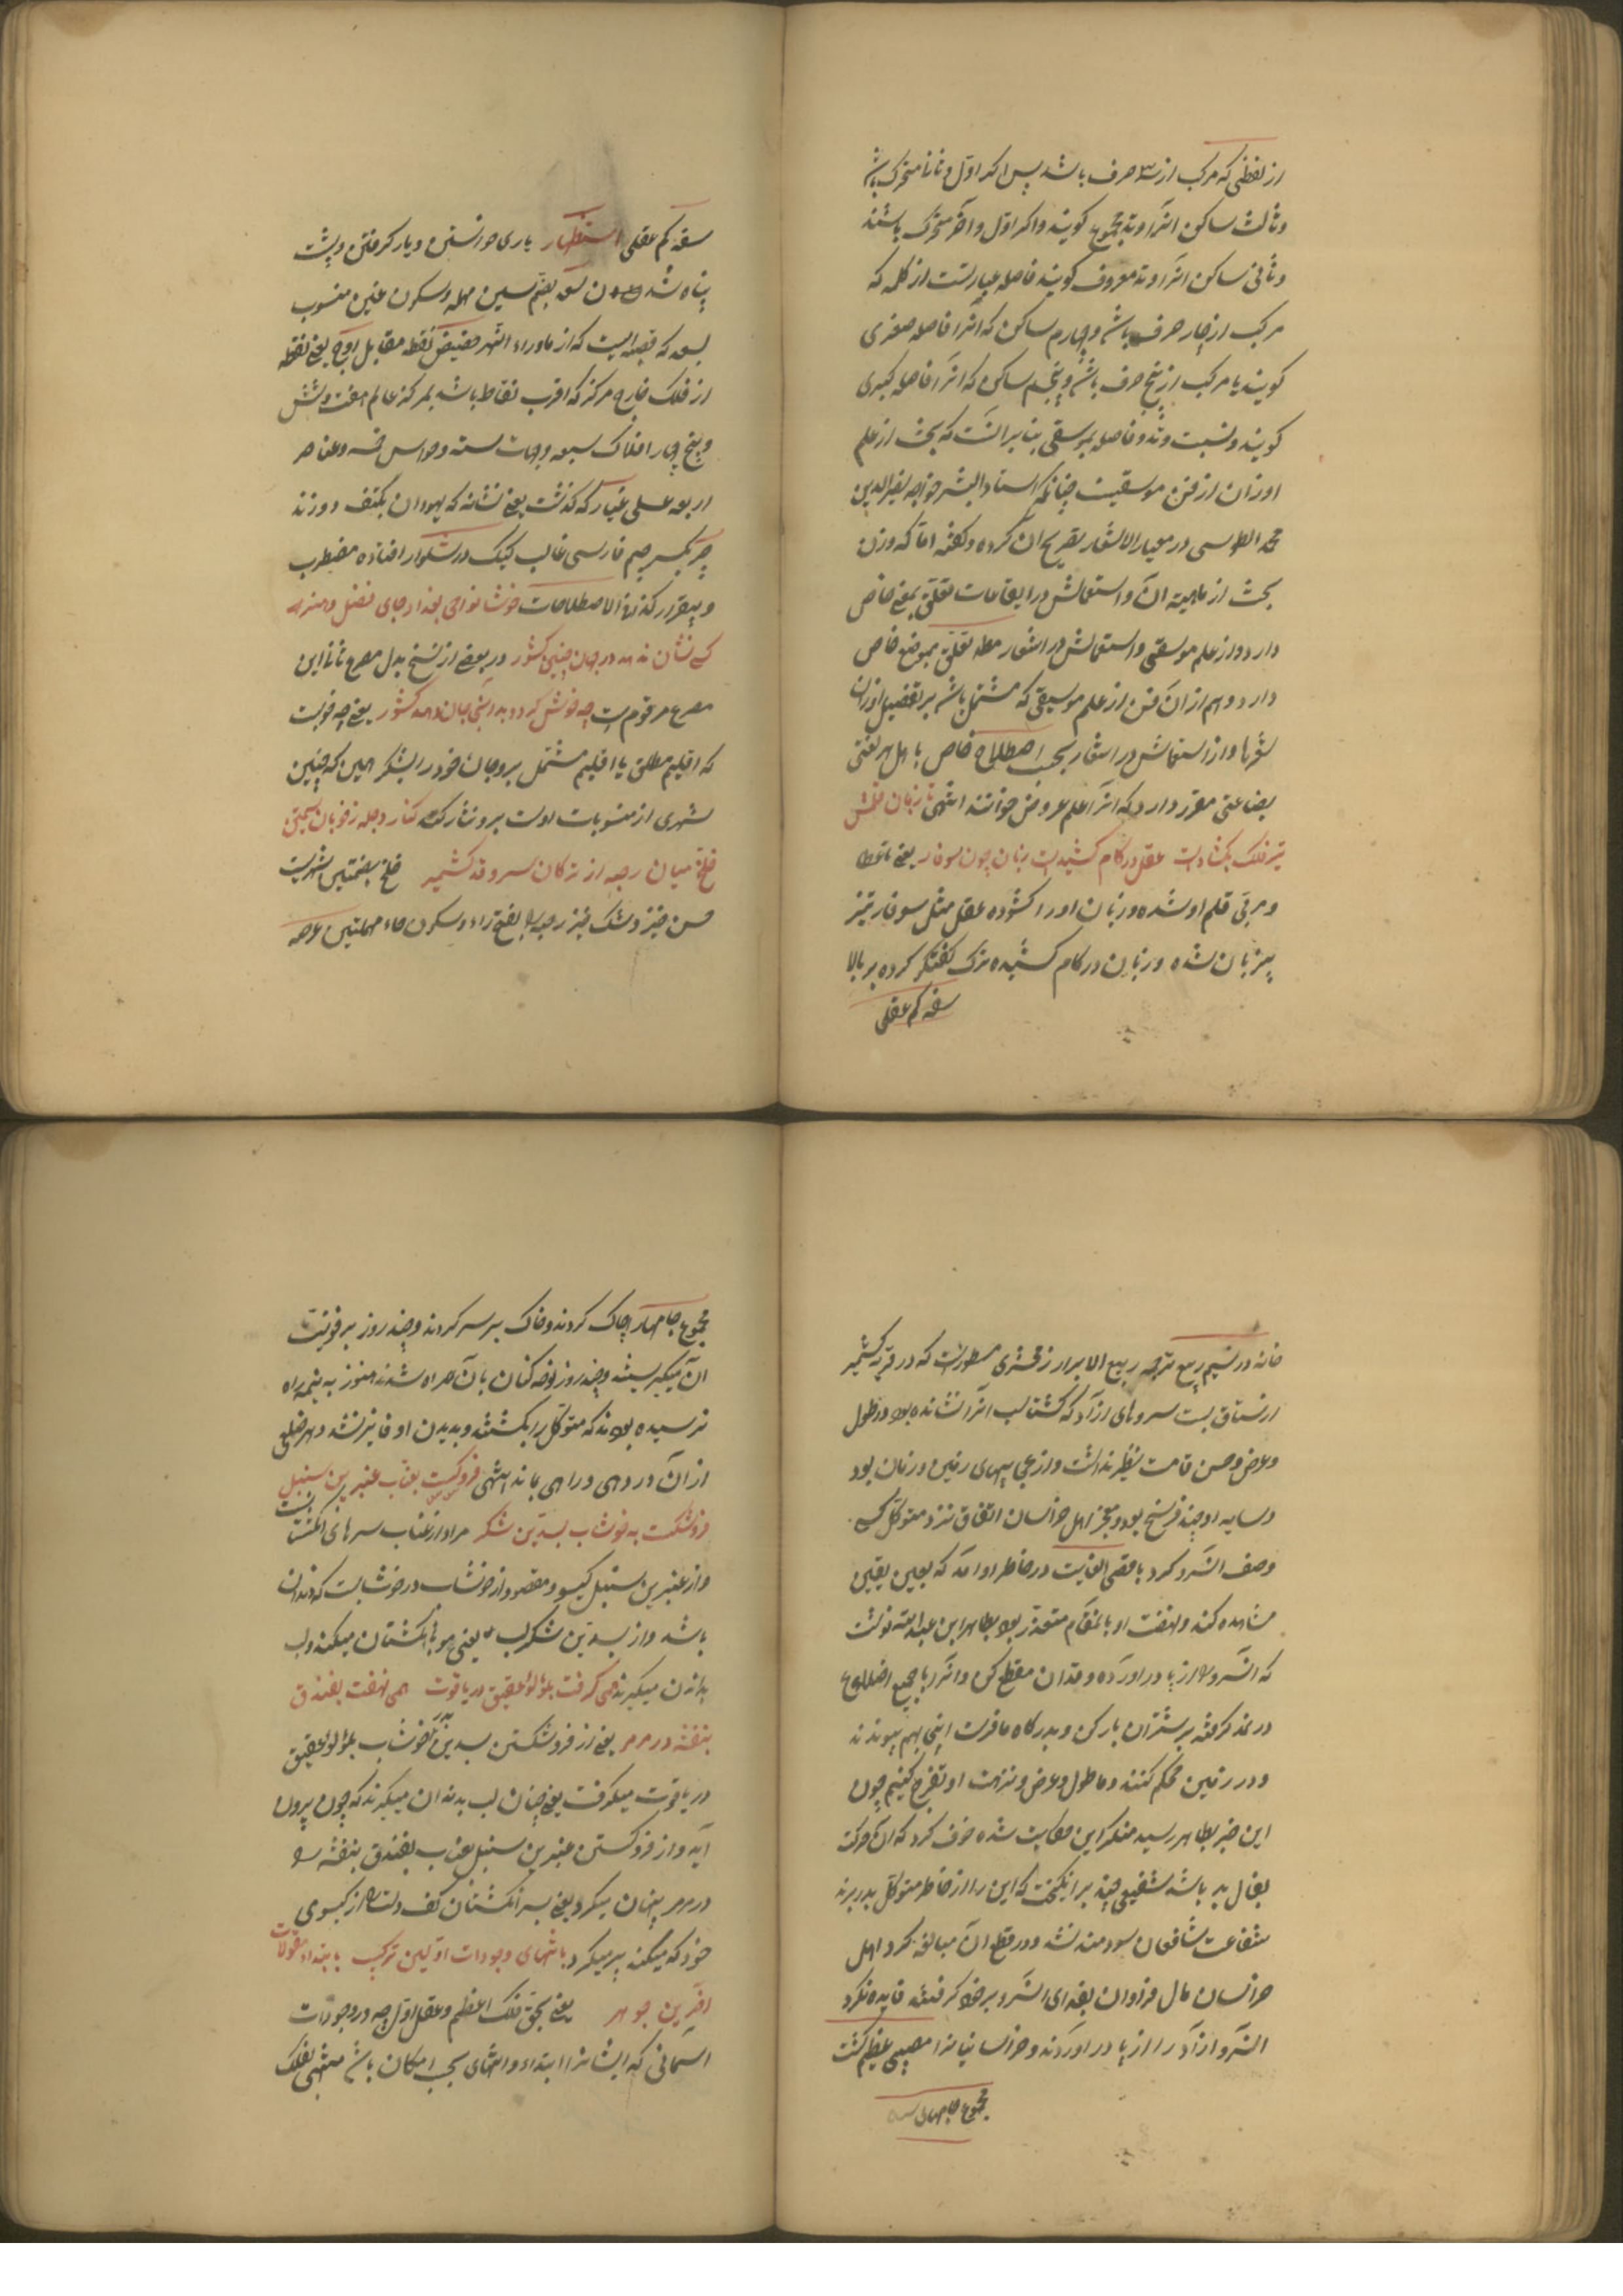 از لفظی که مرکب از سه حرف باشد پس اگر اول و ثانی متحرک باشد
و ثالث ساکن انرا وتد مجموع کویند و اکر اول و اخر متحرک باشند
و ثانی ساکن انرا وتد مفروق کویند فاصله عبارتست از کلمه که
مرکب از چار حرف باشد و چهارم ساکن که انرا فاصله صغری
کویند یا مرکب از پنج حرف باشد و پنجم ساکن که انرا فاصله کبری
کویند و نسبت وتد و فاصله بموسقی بنابر انست که بحث از علم
اوزان از فن موسقیست چنانکه استاد البشر خواجه نصیر الدین
محمد الطوسی در معیار الاشعار تصریح ان کرده و کفته اما که وزن
بحث از ماهیة ان و استعمالش در ایقاعات تعلق بموضع خاص
دارد و از علم موسقی و استعمالش در اشعار مطلقه تعلق بموضع خاص
دارد و هم از ان فن از علم موسیقی که مشتمل باشد بر تفصیل اوزان
شعرها و از استعمالش در اشعار بحسب اصطلاح خاص باهل هر لغتی
بصناعتی مفرد دارد که انرا علم عروض خوانند انتهی تا زبان قلمش
تیر فلک بکشادست عقل در کام کشیدست زبان چون سوفار یعنی تا عطارد
و مربی قلم او شده و زبان اورا کشوده عقل مثل سوفار تیر
بیزبان شده و زبان در کام کشیده ترک کفتکو کرده بر بالا
سفه کم عقلی
سفه کم عقلی استظهار یاری خواستن و یار کرفتن و پشت
پناه شدن سغد بضم سین مهمله و سکون غین منسوب
بسغد که قصبه ایست که از ماوراء النهر حضیض نقطه مقابل اوج یعنی نقطه
از فلک خارج مرکز که اقرب نقاط باشد بمرکز عالم هفت و شش
و پنج چهار افلاک سبعه و جهات سته و حواس خمسه و عناصر
اربعه عسلی غیار که کذشت یعنی نشانه که یهودان بکتف دوزند
چر بکسر جیم فارسی غالب کیک در شلوار افتاده مضطرب
و بیقرار کذا فی الاصطلاحات خوشا نواحی بغداد جای فضل و هنر
کسی نشان ندهد در جهان چنین کشور در بعضی از نسخ بدل مصرع ثانی این
مصرع مرقومست چه خوش کرد و بد انجا جهان و هم کشور یعنی چه خوبست
که اقلیم مطلق یا اقلیم مشتمل بر و جان خود را بشکر این که چنین
شهری از منسوبات اوست برو نثار کند کنار دجله ز خوبان سیمتن
خلخ میان رحبه از ترکان سرو قد کشمیر خلخ بضمتین شهریست
حسن خیز و مشک خیز رحبه بفتح راء و سکون حاء مهملتین عرصه
خانه در نسیم ربیع ترجمه ربیع الابرار زمخشری مسطورست که در قریه کشمیر
از رستاق بست سروهای ازاد که کشتاسب انرا نشانده بود در طول
و عرض و حسن قامت نظیر نداشت و از عجایبهای زمین و زمان بود
و سایه او چند فرسخ بود و مفخر اهل خراسان اتفاق نزد متوکل کسی
وصف ان سرو کرد باقصی الغایت در خاطر او امد که بعین یقین
مشاهده کند و نهضت او بانمقام متعذر بود بطاهر ابن عبدالله نوشت
که ان سرو را از پا در اورده و قدان مقطع کن و انرا با جمیع اضلاع
در نمد کرفته بر شتران بار کن و بدرکاه ما فرست اینجا بهم پیوندند
و در زمین محکم کنند و ما طول و عرض و نزهت او تفرج کنیم چون
این خبر بطاهر رسید منکر این حکایت شده خوف کرد که ان حرکت
بفال بد باشد شفیعی چند برانکیخت که این را از خاطر متوکل بدر برند
شفاعت شافعان سودمند نشد و در قطع آن مبالغه کرد اهل
خراسان مال فراوان بفدای ان سرو بر خود کرفتند فایده نکرد
ان سرو ازاد را از پا در اوردند و خراسانیانرا مصیبتی عظیم کشت
مجموع جامها
مجموع جامها را چاک کردند و خاک بر سر کردند و چند روز بر فوت
ان میکریستند و چند روز نوحه کنان بآن همراه شدند هنوز به نیمه راه
نرسیده بودند که متوکل را بکشتند و بدیدن او فایز نشد و هر ضلعی
از آن در دهی و راهی بماند انتهی فروکست بعناب عنبرین سنبل
فرو شکست به خوشاب بسدین شکر مراد از عناب سرهای انکشتست
و از عنبرین سنبل کیسو و مقصود از خوشاب در خوشابست که دندان
باشد و از بسدین شکر لب یعنی مو بانکشتان میکند و لب
بدندان میکیرند همی کرفت بلؤلؤ عقیق در یاقوت همی نهفت بفندق
بنفشه در مرمر یعنی از فرو شکستن بسدین بخوشاب بلؤلؤ عقیق
در یاقوت میکرفت یعنی چنان لب بدندان میکیرند که چون بیرون
آید و از فرو کستن عنبرین سنبل بعناب بفندق بنفشه را
در مرمر پنهان میکرد یعنی بسر انکشتان کف دست را از کیسوی
خود که میکند پر میکرد بانتهای وجودات اولین ترکیب بابتداء مقولات
اخرین جوهر یعنی بحق فلک اعظم و عقل اول چه در وجودات
اسمانی که ایشانرا ابتداء و انتهای بحسب امکان باشد منتهی بفلک